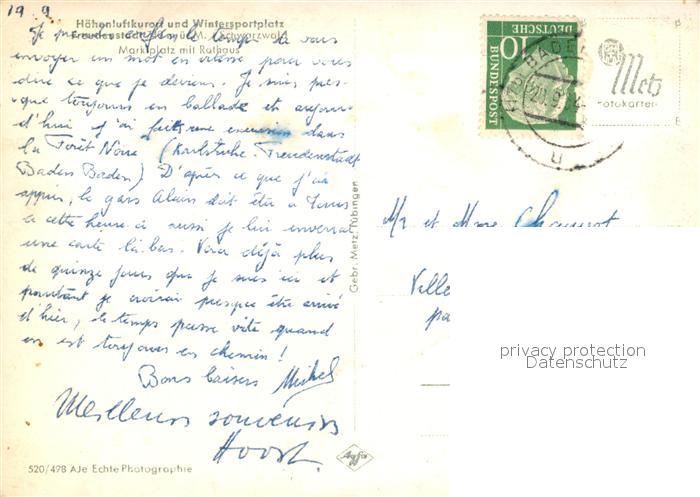 19 9
Höhenluftkurort und Wintersportplatz
Freudenstadt 740 m ü. M. / Schwarzwald
Marktplatz mit Rathaus
Je prends enfin le temps de vous
envoyer un mot en vitesse pour vous
dire ce que je deviens. Je suis pres-
que toujours en ballade et aujour-
d'hui j'ai fait une excursion dans
la Forêt Noire (Karlsruhe. Freudenstadt
Baden Baden) D'après ce que j'ai
appris, le gars Alain doit être à
à cette heure-ci aussi je lui enverrai
une carte là-bas. Voici déjà plus
de quinze jours que je suis ici et
pourtant je croirais presque être arrivé
d'hier, le temps passe vite quand
on est toujours en chemin!
Bons baisers Michel
Meilleurs souvenirs
520/498 AJe Echte Photographie
Gebr. Metz, Tübingen
Agfa
DEUTSCHE
BUNDESPOST
10
BADEN
Metz
Fotokarten
Mr et Mme
privacy protection
Datenschutz